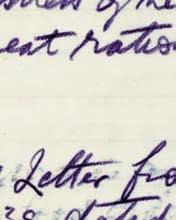 of the
eat ration
Letter fro
dated